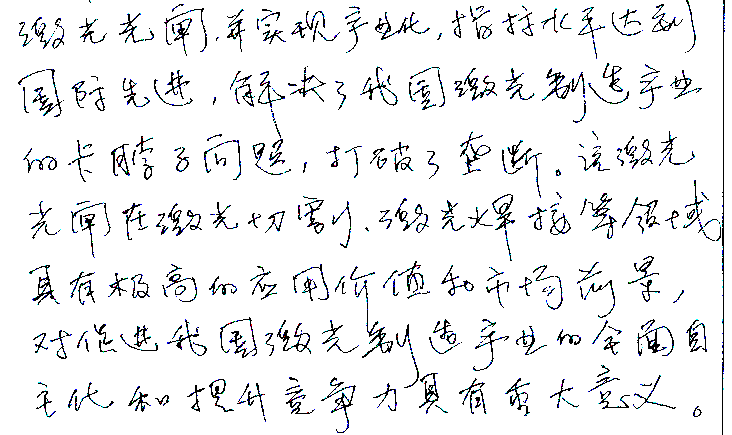 激光光闸,并实现产业化,指标水平达到
国际先进,解决了我国激光制造产业
的卡脖子问题,打破了垄断。该激光
光闸在激光切割、激光焊接等领域
具有极高的应用价值和市场前景,
对促进我国激光制造产业的全面自
主化和提升竞争力具有重大意义。